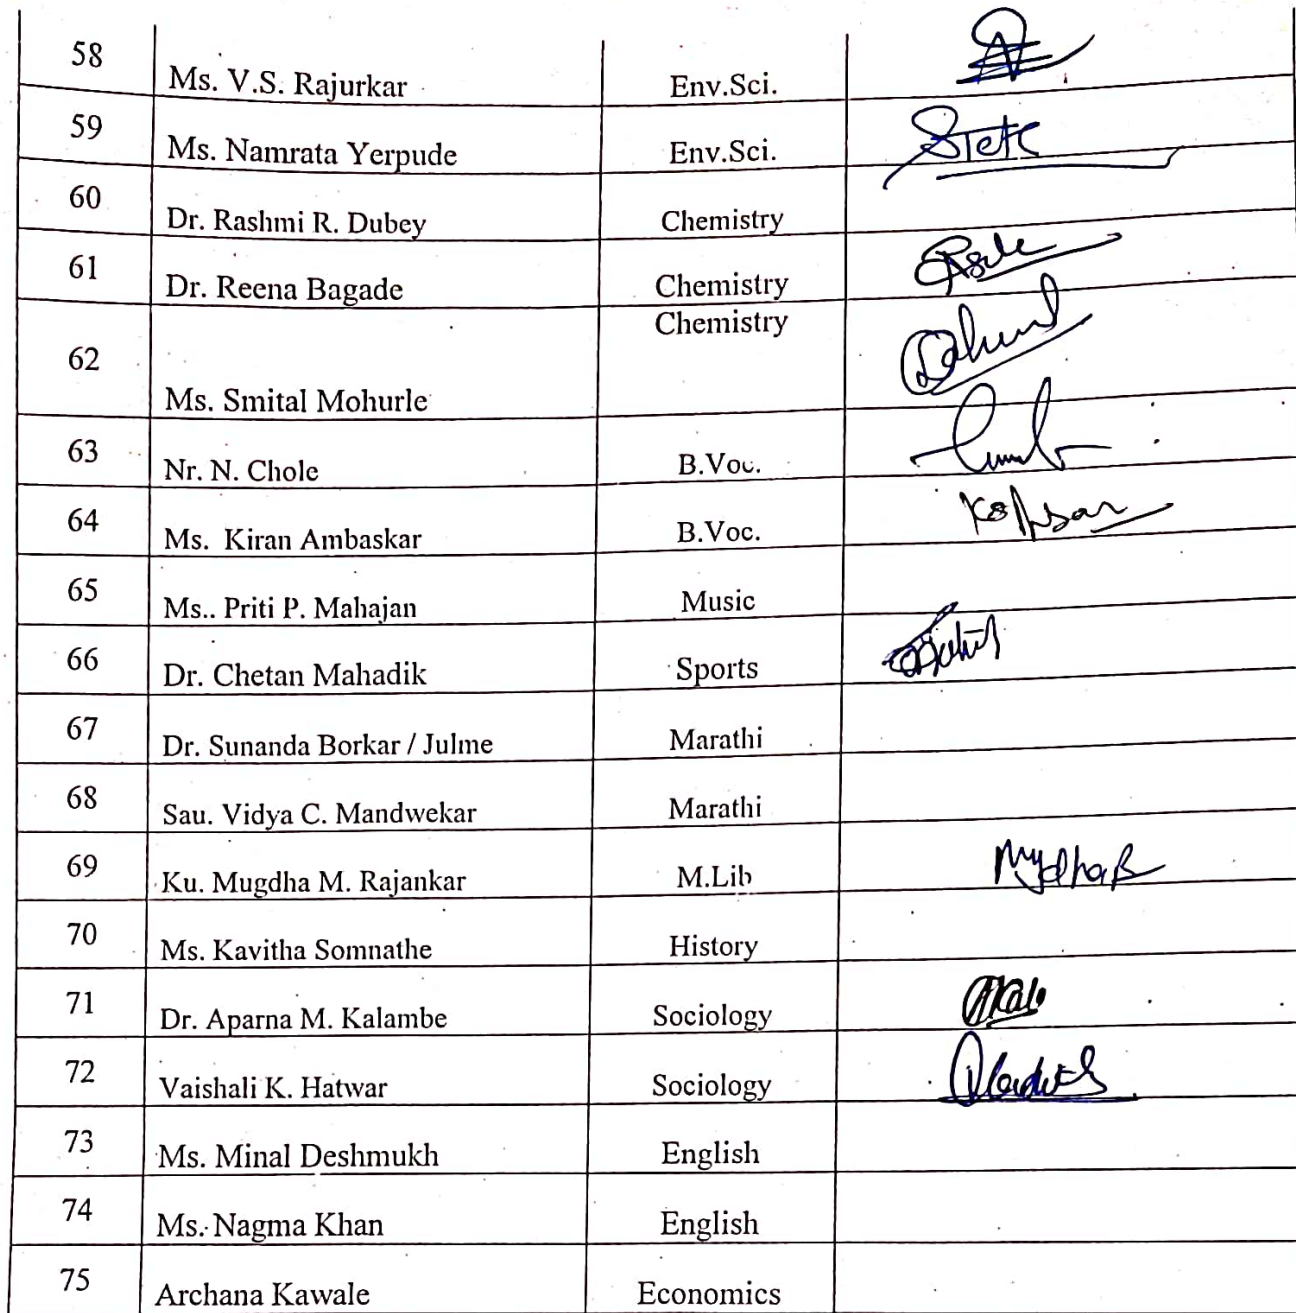 58 Ms. V.S. Rajurkar Env.Sci.
59 Ms. Namrata Yerpude Env.Sci.
60 Dr. Rashmi R. Dubey Chemistry
61 Dr. Reena Bagade Chemistry
62 Ms. Smital Mohurle Chemistry
63 Nr. N. Chole B.Voc.
64 Ms. Kiran Ambaskar B.Voc.
65 Ms.. Priti P. Mahajan Music
66 Dr. Chetan Mahadik Sports
67 Dr. Sunanda Borkar / Julme Marathi
68 Sau. Vidya C. Mandwekar Marathi
69 Ku. Mugdha M. Rajankar M.Lib
70 Ms. Kavitha Somnathe History
71 Dr. Aparna M. Kalambe Sociology
72 Vaishali K. Hatwar Sociology
73 Ms. Minal Deshmukh English
74 Ms. Nagma Khan English
75 Archana Kawale Economics